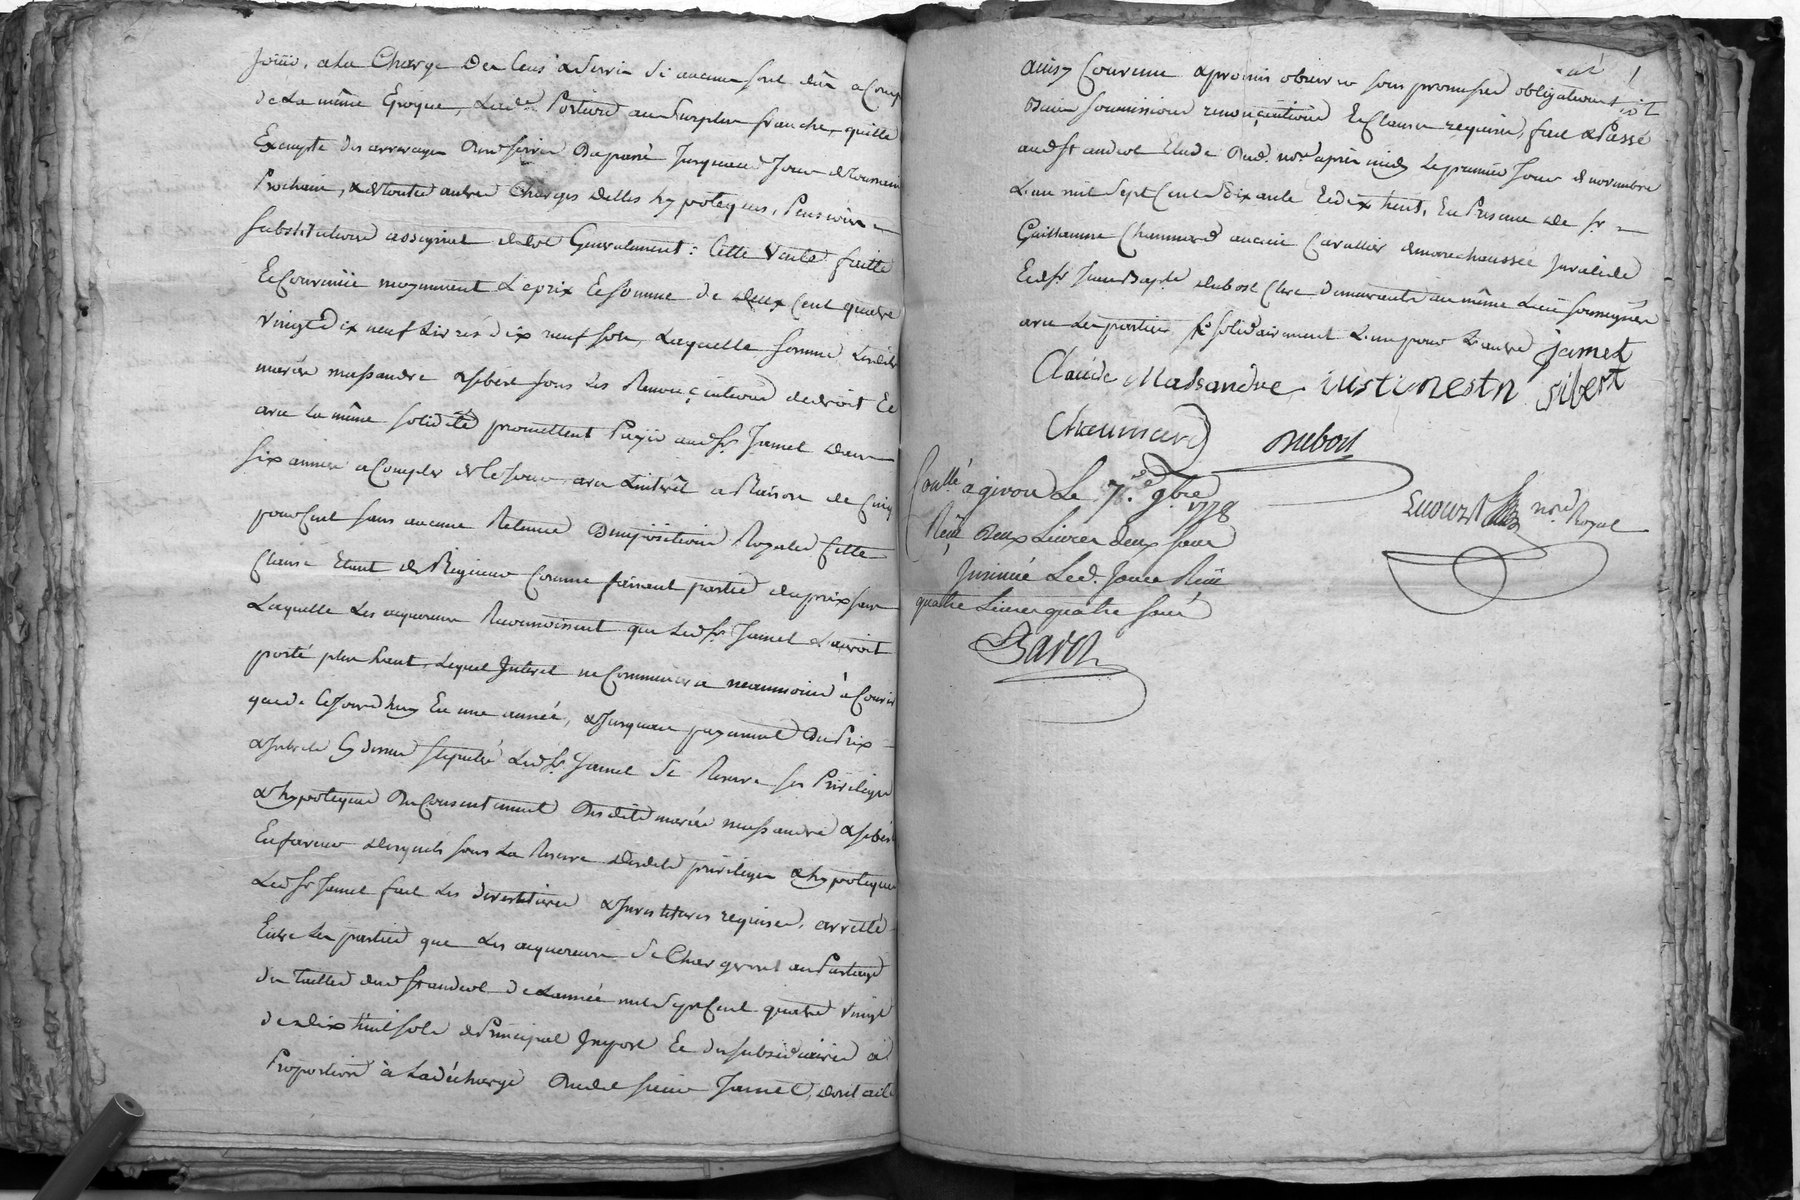 jouir, a la Charge Des Cens & Servis Si aucuns sont dûs a Comp
de La même Epoque, Lade. Portion au Surplus franche, quitte
Exempte des arrerages Desd. servis Du passé Jusquau Jour de toussain
Prochain, & de toutes autres Charges dettes hypoteques, Pensions
substitutions assignat et det Generalement: Cette Vente faitte
Et Convenüe moyennant Le prix Et somme de Deux Cent quatre
vingt Dix neuf Livres dix neuf sols, Laquelle somme Lesdits
mariés massandre & sibert sous Les Renonciations de droit Et
avec La même solidité promettent Payer aud. sr. Jamet dans
six années a Compter de Ce Jour avec Linterêt a Raison de Cinq
pour Cent sans aucune Retenue Dimpositions Royales Cette
Clause Etant de Rigueur Comme faisant partie du prix sans
Laquelle Les acquereurs Reconnoissent que Led. sr. Jamet L'auroit
porté plus haut, Lequel Interet ne Commencera neanmoins a Courir
que de Cejourdhuy En une année, & Jusquau payement Du Prix
Led. sr. Jamet Se Reserve ses Privileges
& hypoteques Du Consentement Desdits mariés massandre & sibert
En faveur desquels sous La Reserve desdits privileges & hypoteques
Led. sr Jamet fait Les devestitures & Investitures requises, arretté
Entre Les parties que Les acquereurs Se Chargeront au Partage
Des tailles dud. St andeol de L'année mil Sept Cent quatre vingt
de dix huit sols de Principal Import Et des subsidiaires a
Proportion à La décharge Dudit sieur Jamet, dont acte
ainsy Convenu & promis observer sous promesses obligations
soumissions renonciations Et Clauses requises, fait & Passé
aud. St andeol Etude Dud. nore. après midy Le premier Jour de novembre
L'an mil Sept Cent Soixante Et dix huit, En Presence de Sr.
Guillaume Chaumard ancien Cavallier de marechaussée Invalide
Et de Sr Jean Bapte. dubost Clerc demeurants au même Lieu soussignés
avec Les parties solidairement L'un pour L'autre Jamet
Claude Massandre iustinestn sibert
Chaumard Dubost
Conllé. à givors Le 7.e 9bre. 1778
Reçu Deux Livres deux sous
nore. Royal
Insinué Led. Jour Reçu
quatre Livres quatre sous
Baron